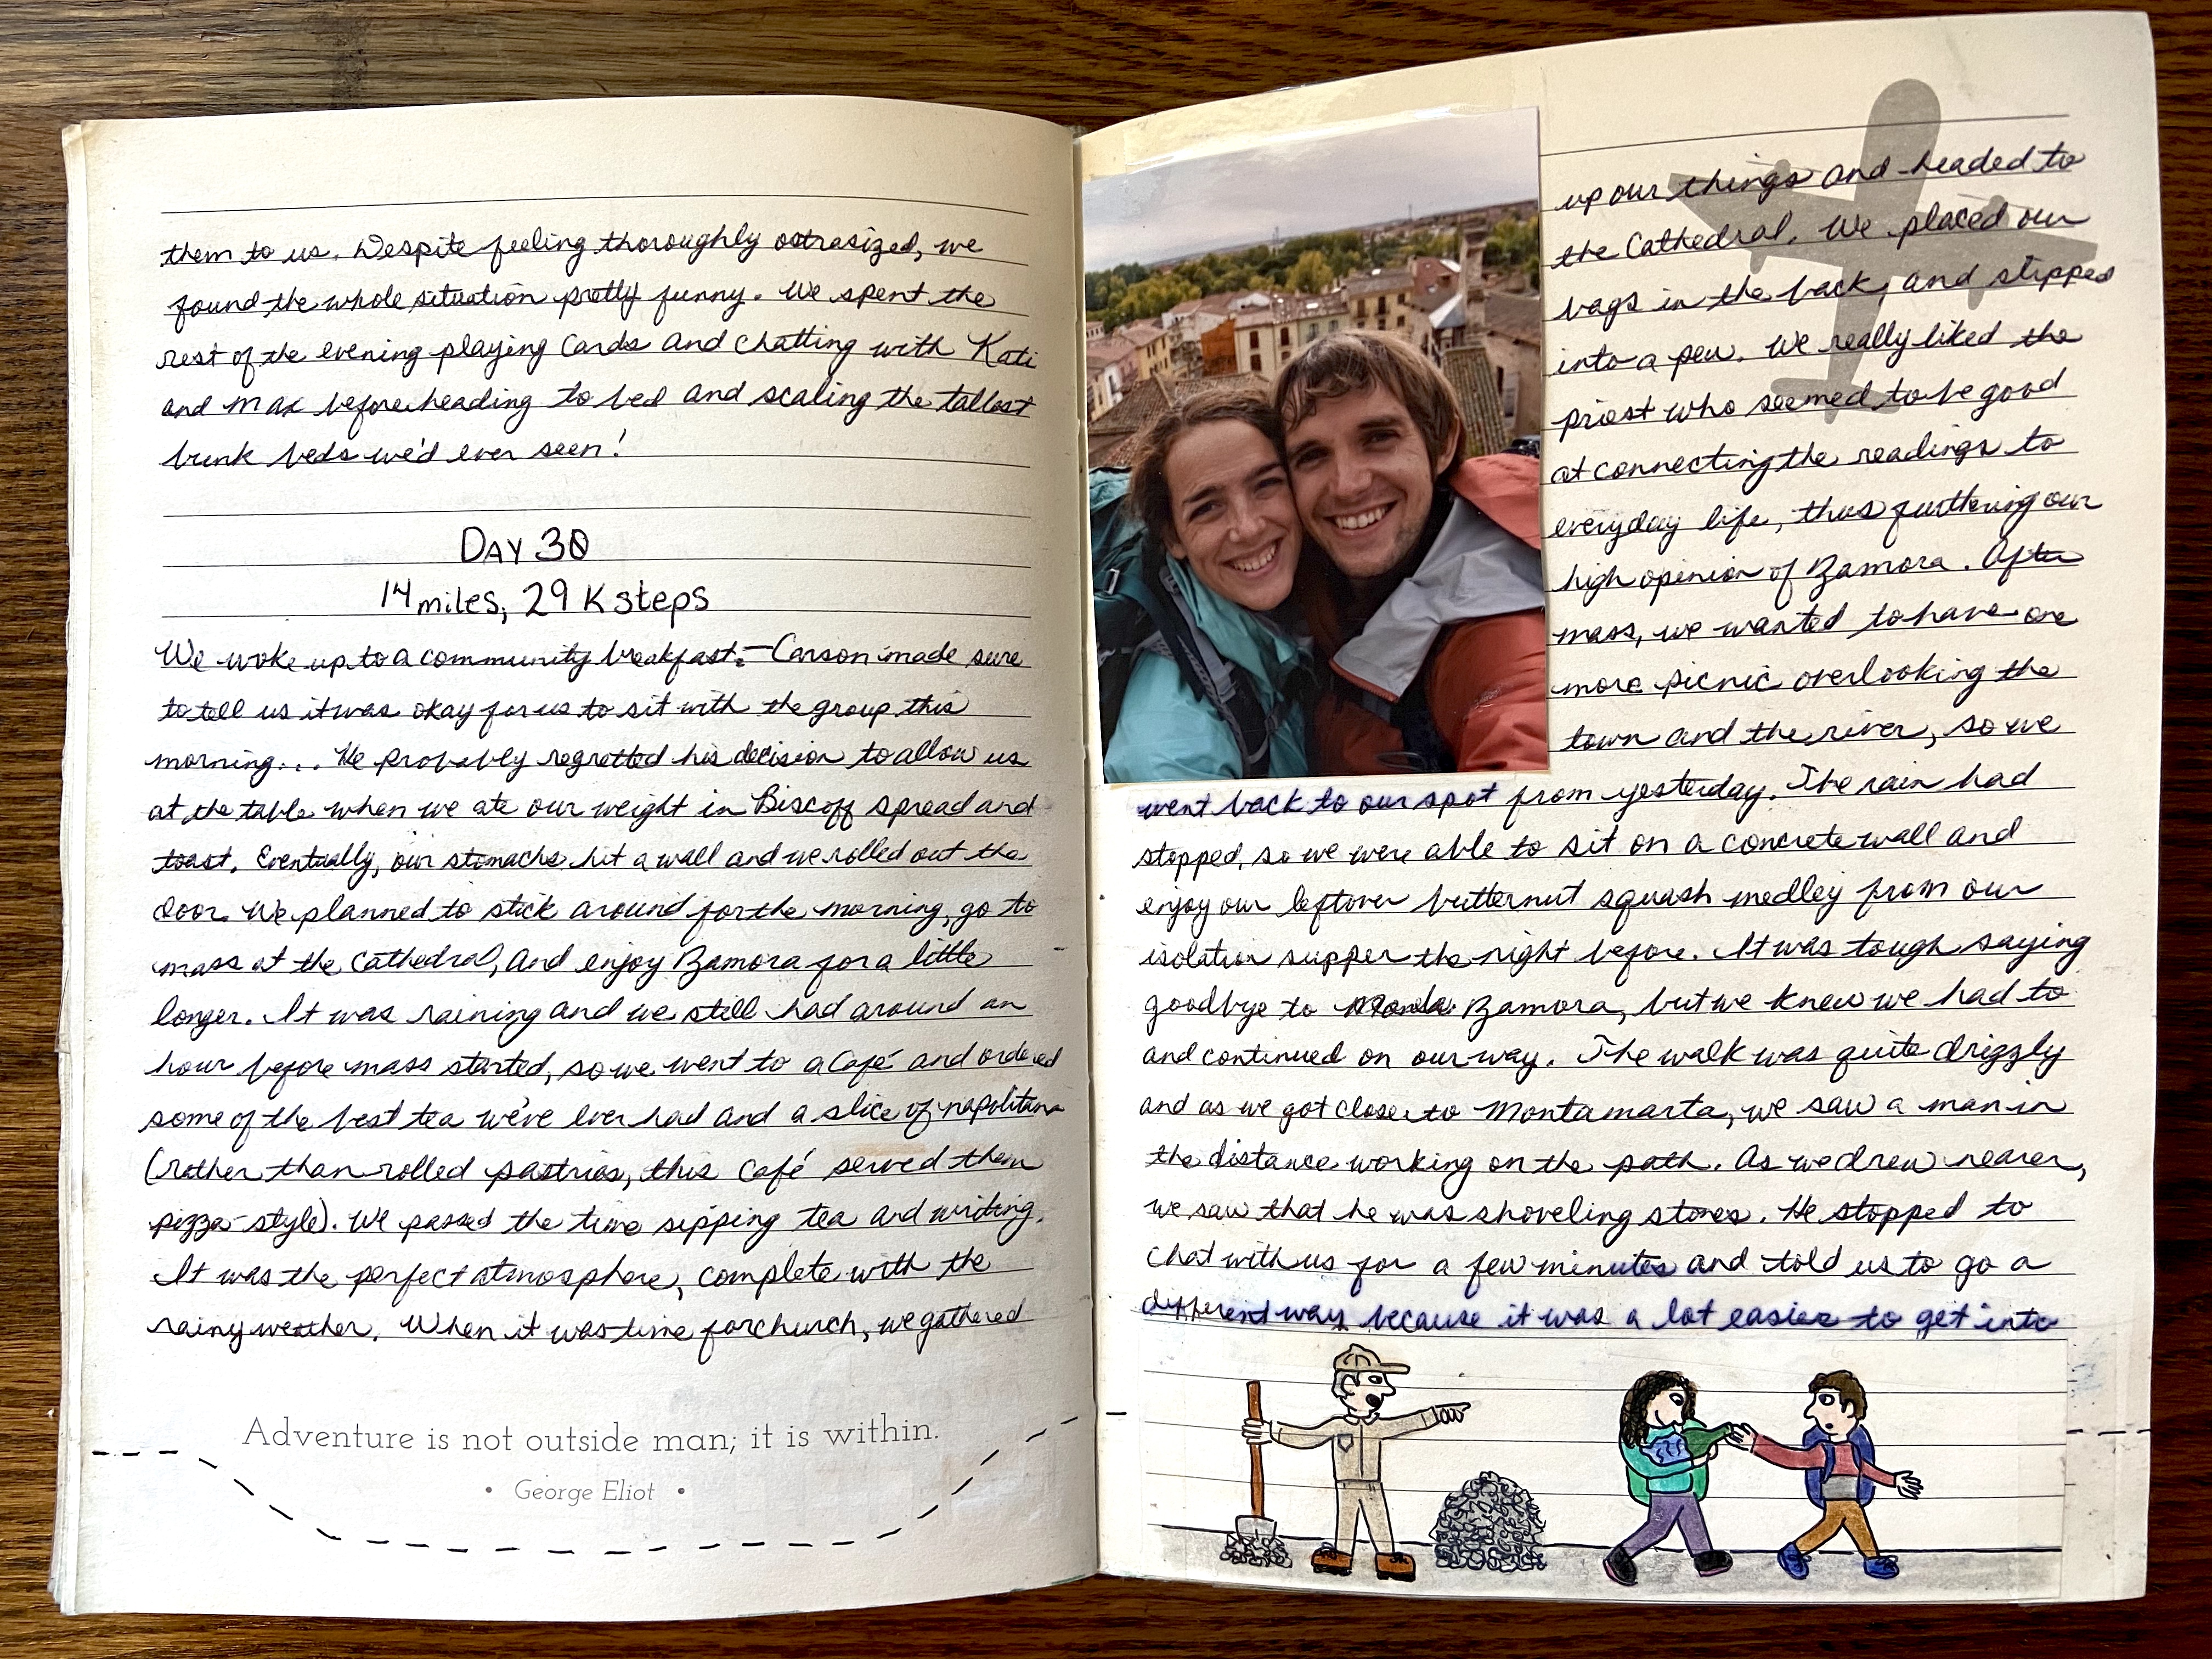 them to us. Despite feeling thoroughly ostrasized, we
found the whole situation pretty funny. We spent the
rest of the evening playing cards and chatting with Kati
and Max before heading to bed and scaling the tallest
bunk beds we'd ever seen!
DAY 30
14 miles, 29K steps
We woke up to a community breakfast. Carson made sure
to tell us it was okay for us to sit with the group this
morning... He probably regretted his decision to allow us
at the table when we ate our weight in Biscoff spread and
toast. Eventually, our stomachs hit a wall and we rolled out the
door. We planned to stick around for the morning, go to
mass at the Cathedral, and enjoy Zamora for a little
longer. It was raining and we still had around an
hour before mass started, so we went to a Café and ordered
some of the best tea we've ever had and a slice of napolitana
(rather than rolled pastries, this café served them
pizza-style). We passed the time sipping tea and writing.
It was the perfect atmosphere, complete with the
rainy weather. When it was time for church, we gathered
Adventure is not outside man; it is within.
• George Eliot •
up our things and headed to
the Cathedral. We placed our
bags in the back, and slipped
into a pew. We really liked the
priest who seemed to be good
at connecting the readings to
everyday life, thus furthering our
high opinion of Zamora. After
mass, we wanted to have one
more picnic overlooking the
town and the river, so we
went back to our spot from yesterday. The rain had
stopped, so we were able to sit on a concrete wall and
enjoy our leftover butternut squash medley from our
isolation supper the night before. It was tough saying
goodbye to Zamora, but we knew we had to
and continued on our way. The walk was quite drizzly
and as we got close to Montamarta, we saw a man in
the distance working on the path. As we drew nearer,
we saw that he was shoveling stones. He stopped to
chat with us for a few minutes and told us to go a
different way because it was a lot easier to get into